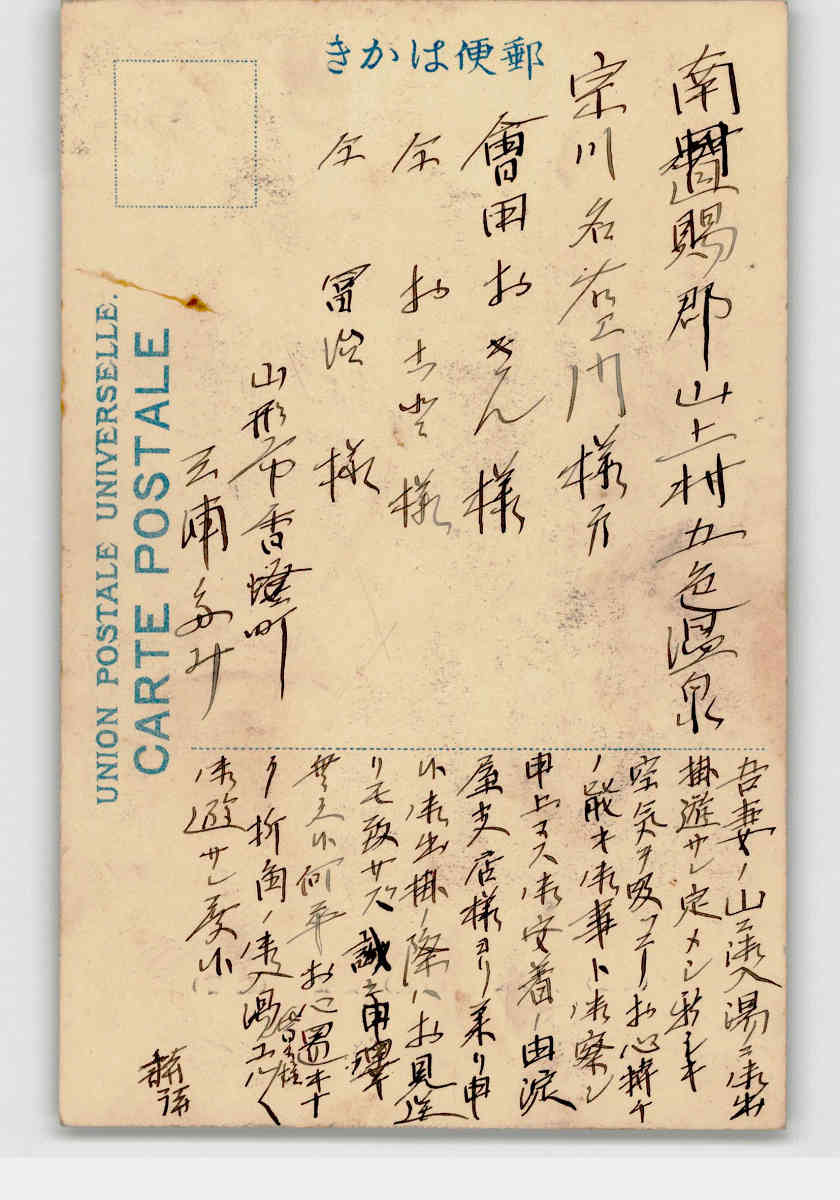 郵便はかき
南置賜郡山上村五色温泉
宗川名右エ門様方
會田おきん様
仝 お様
仝 冨治 様
山形市香澄町
三浦なみ
吾妻ノ山ニ御入湯ニ御出
掛遊サレ定メシ新シキ
空気ヲ吸フテお心持チ
ノ能キ御事ト御察シ
申上マス御安着ノ由
屋支店様ヨリ承リ申
候御出掛ノ際ハお見送
リモ致サズ誠ニ申譯
無之候何卒お心置キナ
ク折角ノ御入湯
御遊サレ度候
UNION POSTALE UNIVERSELLE.
CARTE POSTALE